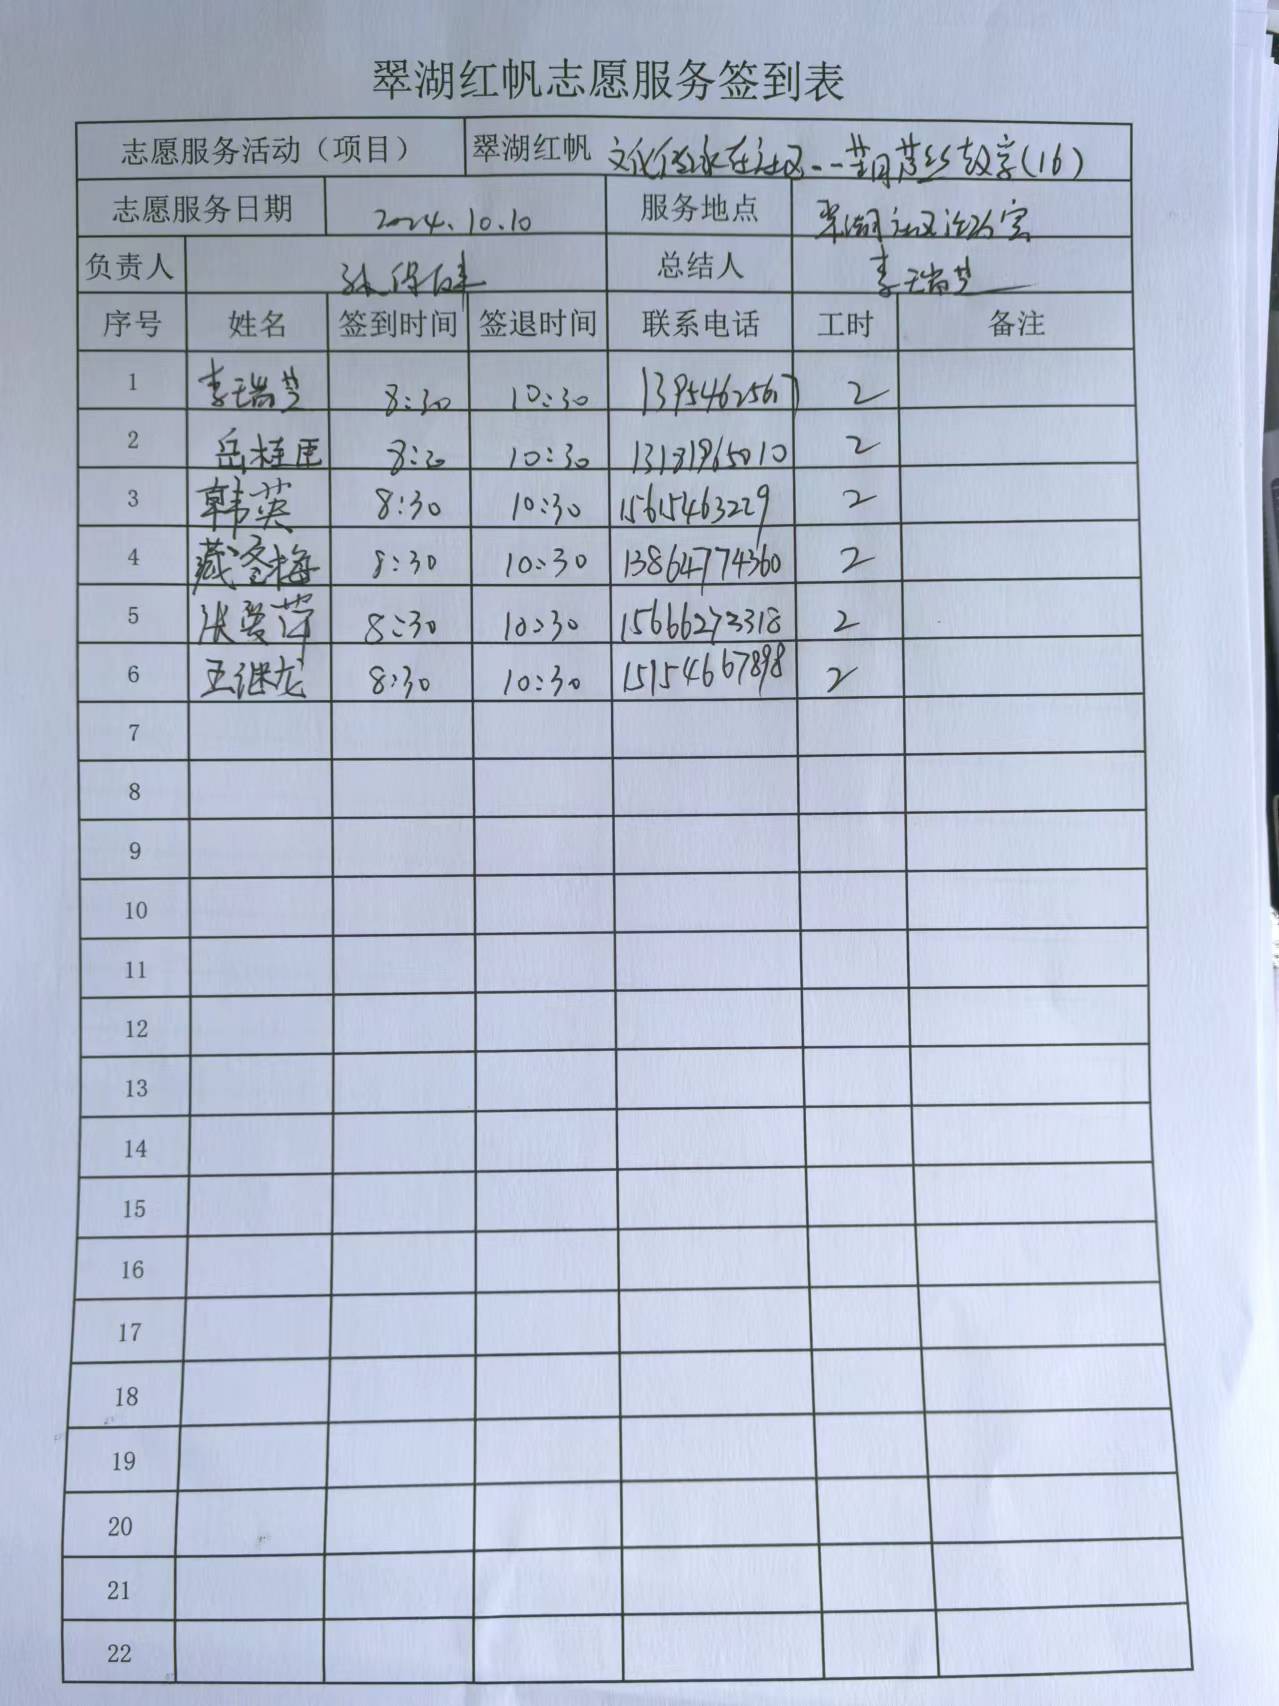 翠湖红帆志愿服务签到表
志愿服务活动（项目） 翠湖红帆 文化传承在社区--葫芦丝教学(16)
志愿服务日期 2024.10.10 服务地点 翠湖社区活动室
负责人 总结人 李瑞芝
序号 姓名 签到时间 签退时间 联系电话 工时 备注
1 李瑞芝 8:30 10:30 13954625617 2
2 岳桂 8:30 10:30 13181965010 2
3 韩英 8:30 10:30 15615463229 2
4 藏冬梅 8:30 10:30 13864774360 2
5 张爱萍 8:30 10:30 15666272318 2
6 王继龙 8:30 10:30 15154667898 2
7
8
9
10
11
12
13
14
15
16
17
18
19
20
21
22